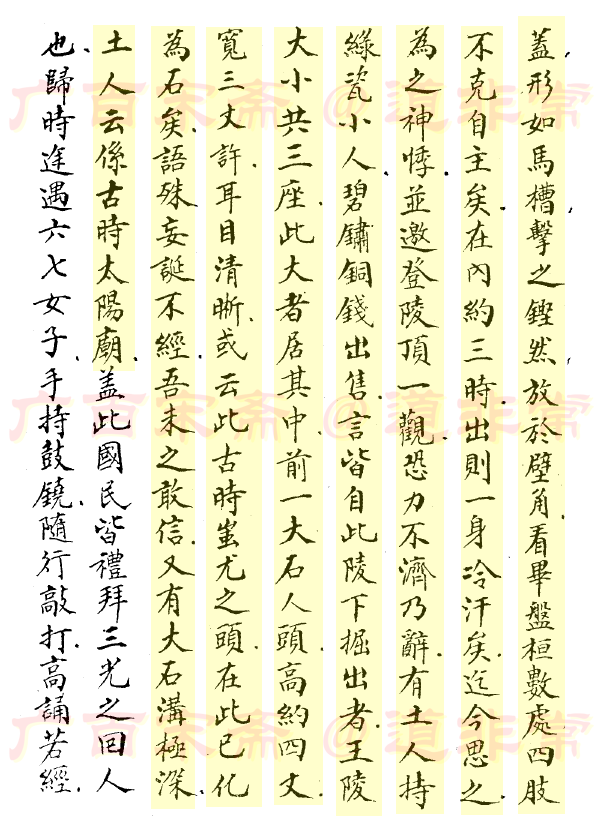 蓋、形如馬槽、擊之鏗然、放於壁角、看畢盤桓數處四肢
不克自主矣、在內約三時、出則一身冷汗矣、迄今思之
為之神悸、並邀登陵頂一觀、恐力不濟乃辭、有土人持
綠瓷小人、碧鏽銅錢出售、言皆自此陵下掘出者、王陵
大小共三座、此大者居其中、前一大石人頭高約四丈、
寬三丈許、耳目清晰、或云此古時蚩尤之頭、在此已化
為石矣、語殊妄誕不經、吾未之敢信、又有大石溝極深、
土人云係古時太陽廟、蓋此國民皆禮拜三光之回人
也、歸時途遇六七女子、手持鼓鐃、隨行敲打、高誦若經、
广百宋斋 @道非常
广百宋斋 @道非常
广百宋斋 @道非常